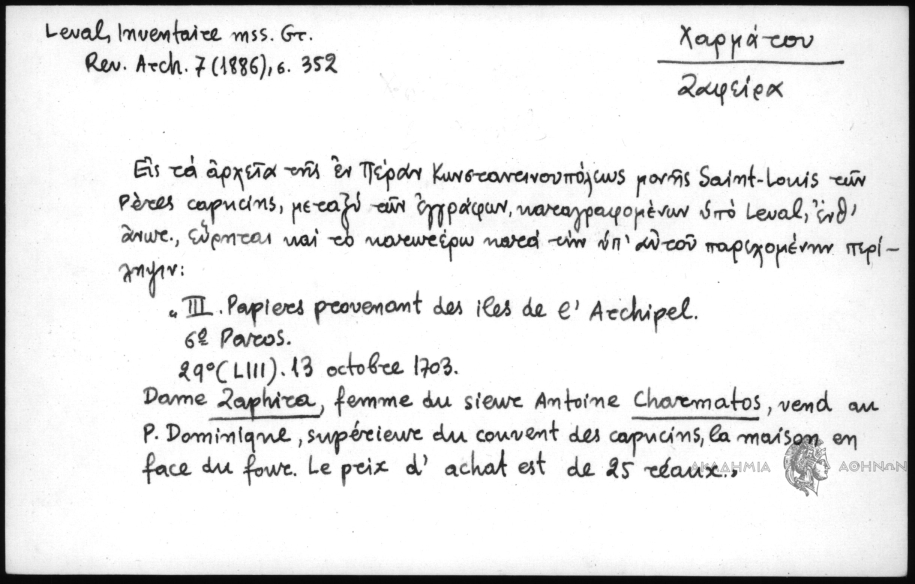 Leval, Inventaire mss. Gr.
Rev. Arch. 7 (1886), σ. 352
Χαρμάτου
Ζαφείρα
Εἰς τά ἀρχεῖα τῆς ἐν Πέραν Κωνσταντινουπόλεως μονῆς Saint-Louis τῶν
Pères capucins, μεταξύ τῶν ἐγγράφων, καταγραφομένων ὑπό Leval, ἔνθ'
ἀνωτ., εὕρηται καί τό κατωτέρω κατά τήν ὑπ' αὐτοῦ παρεχομένην περί-
ληψιν:
„III. Papiers provenant des iles de l' Archipel.
6º Paros.
29º (LIII). 13 octobre 1703.
Dame Zaphira, femme du sieur Antoine Charmatos, vend au
P. Dominique, supérieur du couvent des capucins, la maison en
face du four. Le prix d' achat est de 25 réaux.„
ΑΚΑΔΗΜΙΑ ΑΘΗΝΩΝ